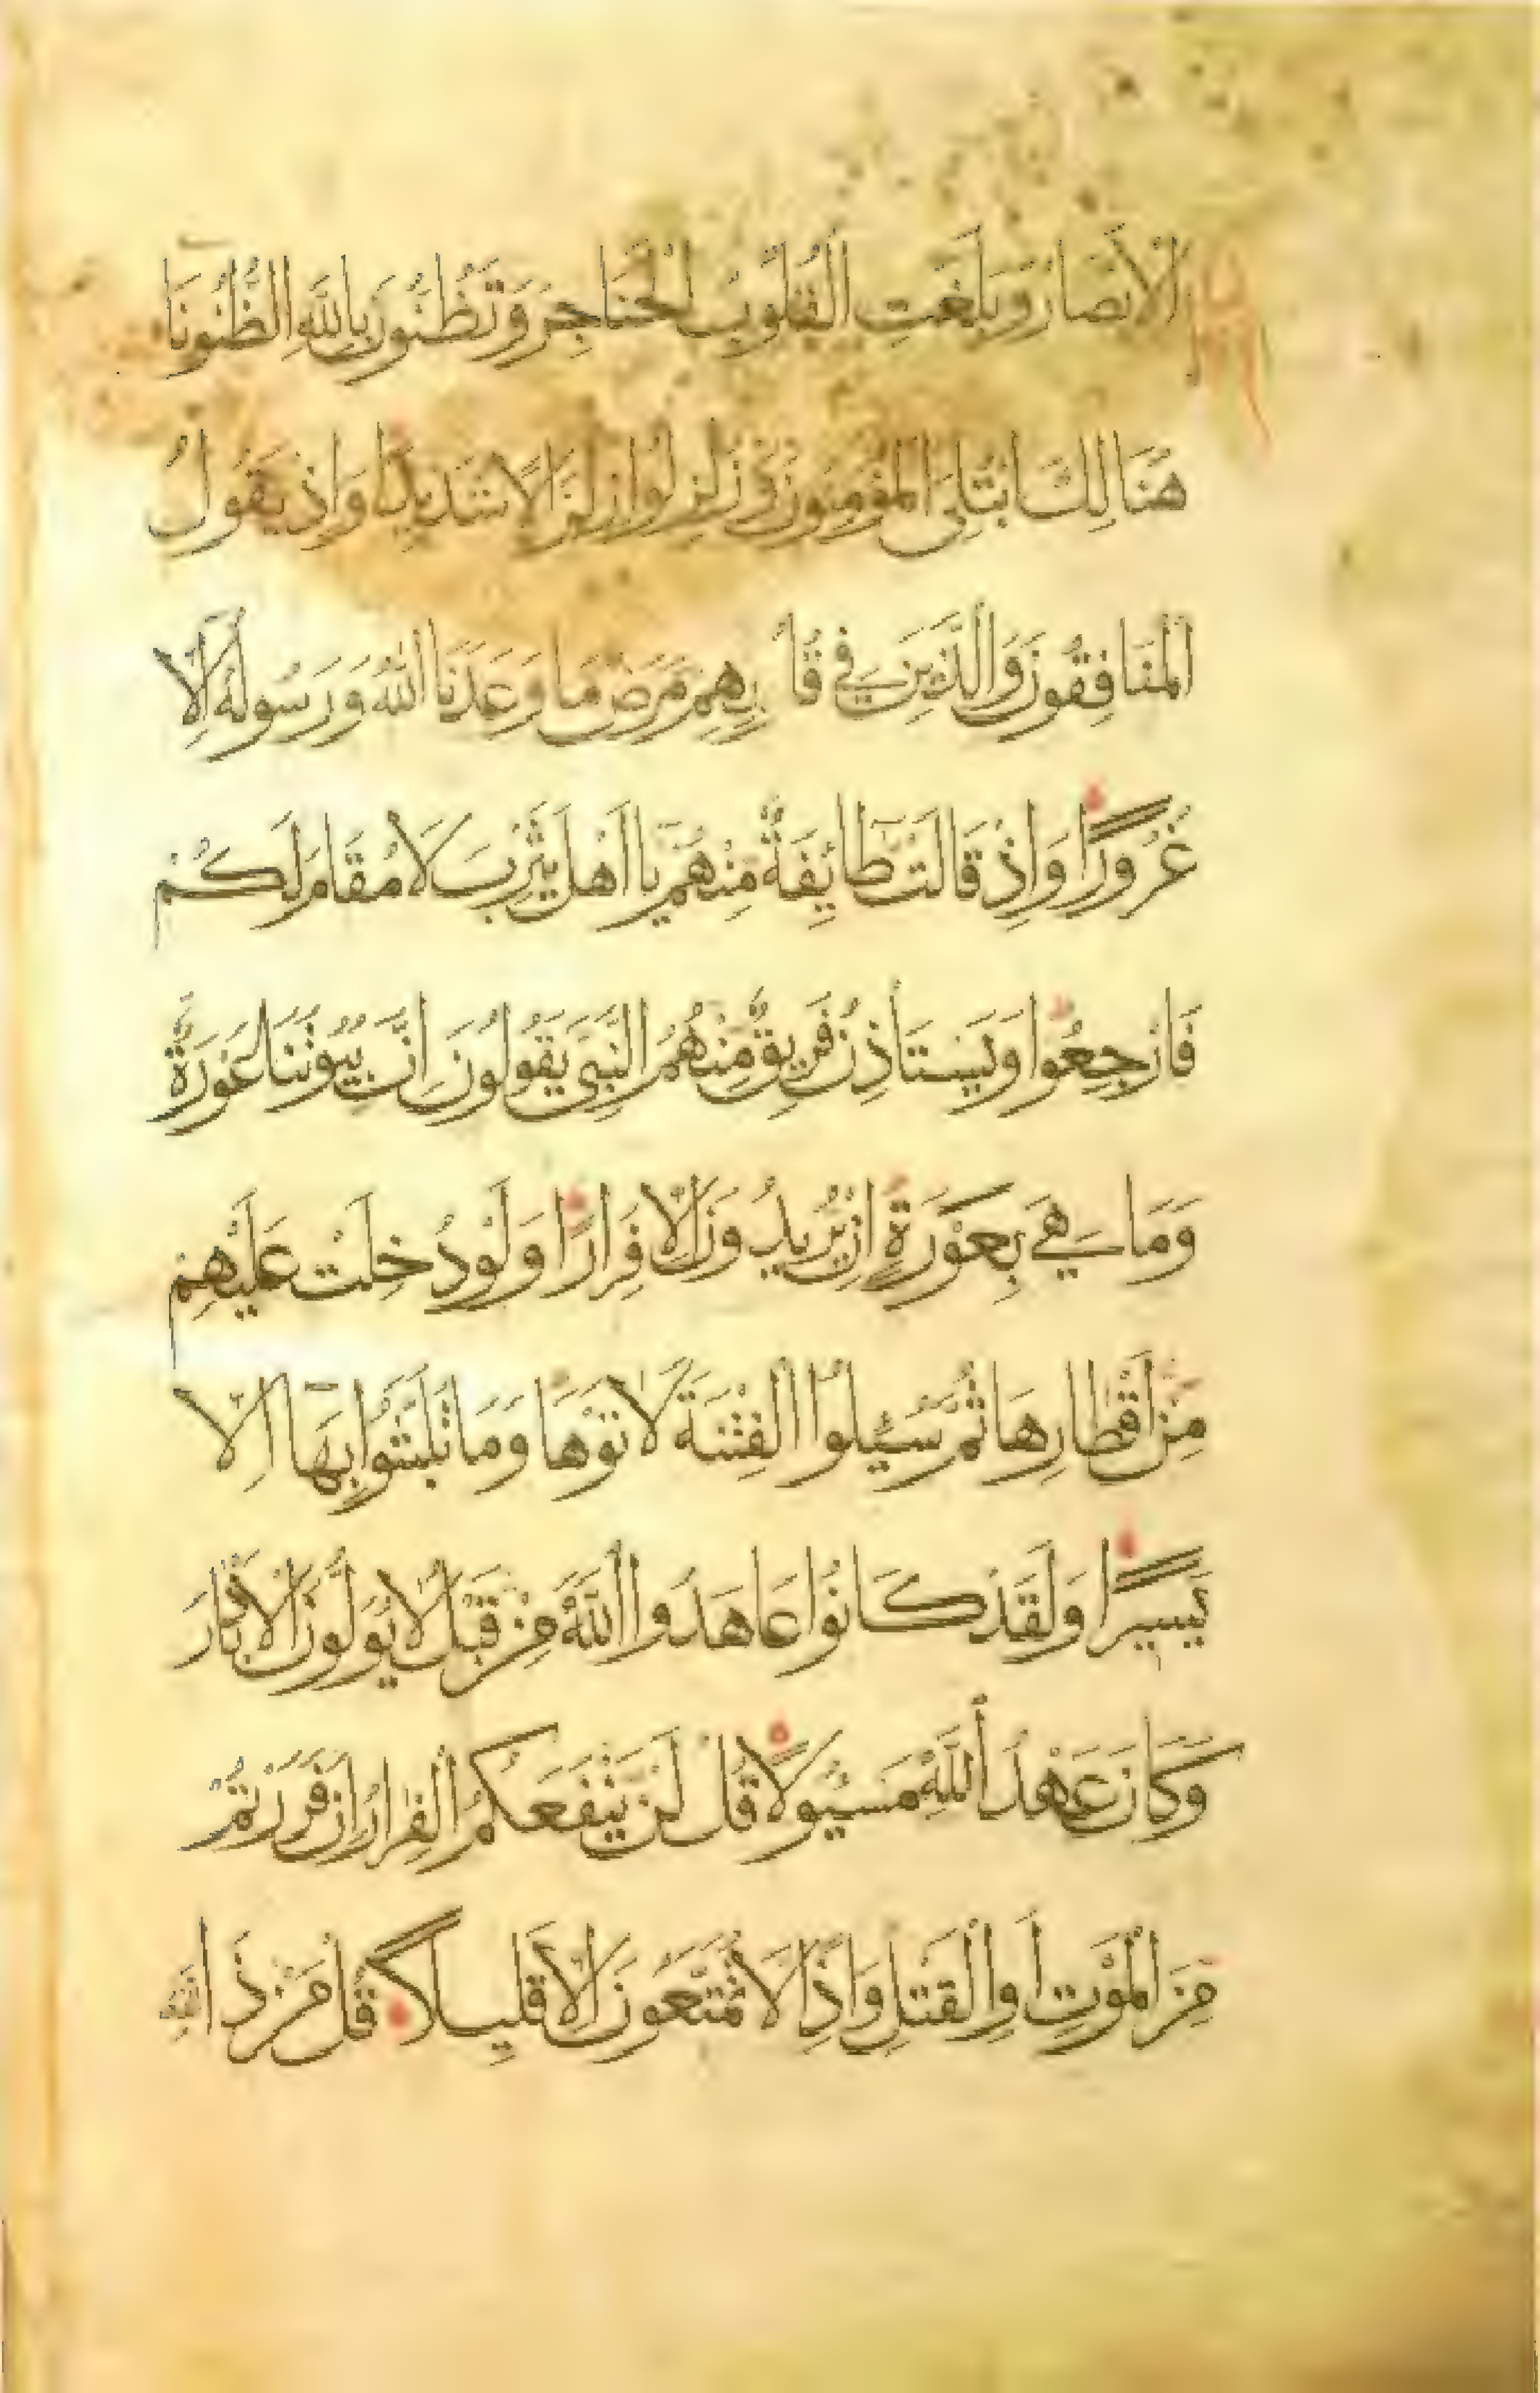 الْاَبْصَارُ وَبَلَغَتِ الْقُلُوبُ الْحَنَاجِرَ وَتَظُنُّونَ بِاللَّهِ الظُّنُونَا
هُنَالِكَ ابْتُلِيَ الْمُؤْمِنُونَ وَزُلْزِلُوا زِلْزَالًا شَدِيدًا وَاِذْ يَقُولُ
الْمُنَافِقُونَ وَالَّذِينَ فِي قُلُوبِهِمْ مَرَضٌ مَا وَعَدَنَا اللَّهُ وَرَسُولُهُ اِلَّا
غُرُورًا وَاِذْ قَالَتْ طَائِفَةٌ مِنْهُمْ يَا اَهْلَ يَثْرِبَ لَا مُقَامَ لَكُمْ
فَارْجِعُوا وَيَسْتَأْذِنُ فَرِيقٌ مِنْهُمُ النَّبِيَّ يَقُولُونَ اِنَّ بُيُوتَنَا عَوْرَةٌ
وَمَا هِيَ بِعَوْرَةٍ اِنْ يُرِيدُونَ اِلَّا فِرَارًا وَلَوْ دُخِلَتْ عَلَيْهِمْ
مِنْ اَقْطَارِهَا ثُمَّ سُئِلُوا الْفِتْنَةَ لَاتَوْهَا وَمَا تَلَبَّثُوا بِهَا اِلَّا
يَسِيرًا وَلَقَدْ كَانُوا عَاهَدُوا اللَّهَ مِنْ قَبْلُ لَا يُوَلُّونَ الْاَدْبَارَ
وَكَانَ عَهْدُ اللَّهِ مَسْئُولًا قُلْ لَنْ يَنْفَعَكُمُ الْفِرَارُ اِنْ فَرَرْتُمْ
مِنَ الْمَوْتِ اَوِ الْقَتْلِ وَاِذًا لَا تُمَتَّعُونَ اِلَّا قَلِيلًا قُلْ مَنْ ذَا